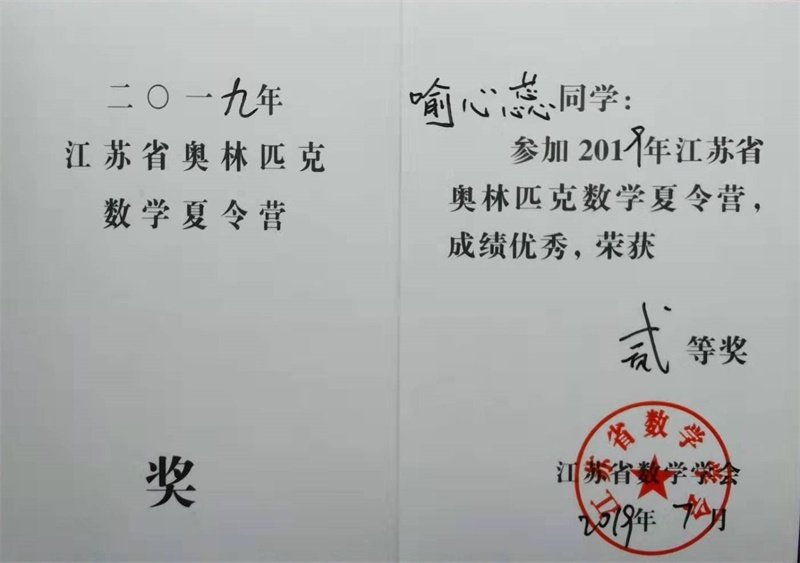 二〇一九年
江苏省奥林匹克
数学夏令营
奖
喻心蕊同学：
参加2019年江苏省
奥林匹克数学夏令营，
成绩优秀，荣获
贰等奖
江苏省数学学会
2019年7月
江苏省数学学会